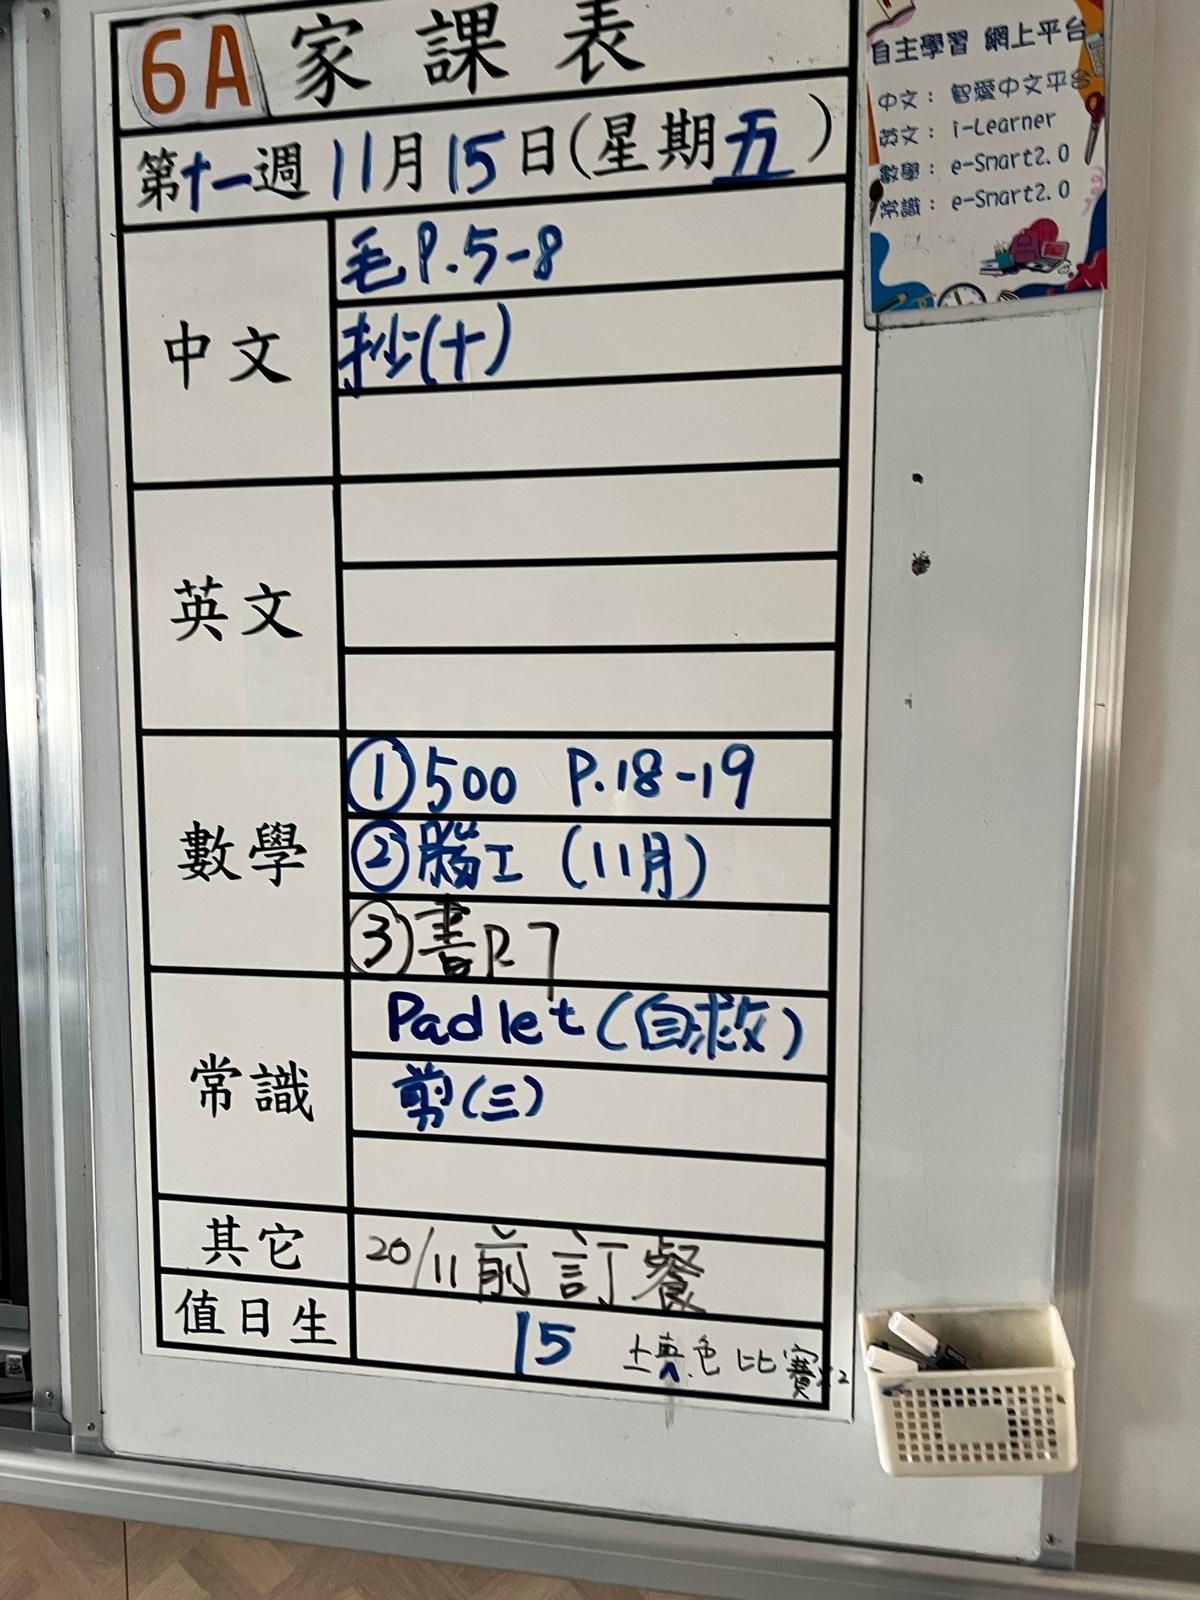 6A 家課表
第十一週 11月15日(星期五)
中文
毛 P.5-8
抄(十)
英文
數學
① 500 P.18-19
② 腦工 (11月)
③ 書P.7
常識
Padlet (自救)
剪(三)
其它
20/11前訂餐
值日生
15
填色比賽x2
自主學習 網上平台
中文： 智愛中文平台
英文： i-Learner
數學： e-Smart2.0
常識： e-Smart2.0